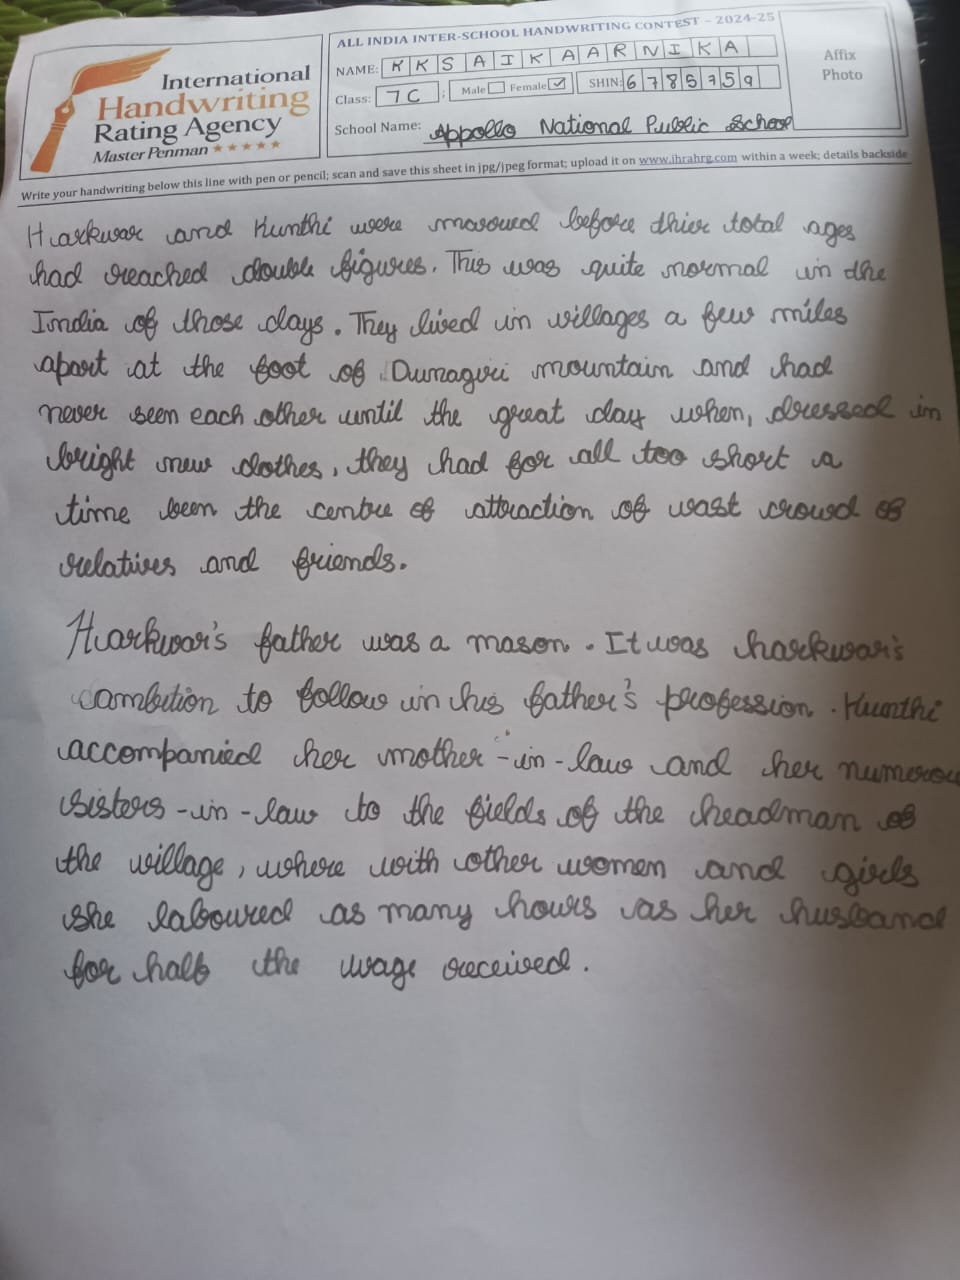 ALL INDIA INTER-SCHOOL HANDWRITING CONTEST - 2024-25
International
Handwriting
Rating Agency
Master Penman ★★★★★
NAME: K K S A I K A A R N I K A
Class: 7C ; Male Female ✓ SHIN: 6 7 8 5 7 5 9
School Name: Appollo National Public School
Affix
Photo
Write your handwriting below this line with pen or pencil; scan and save this sheet in jpg/jpeg format; upload it on www.ihrahrg.com within a week; details backside
Harkwar and Kunthi were maroued before thier total ages
had reached double figures. This was quite normal in the
India of those days. They lived in villages a few miles
apart at the foot of Dunagiri mountain and had
never seen each other until the great day when, dressed in
bright new clothes, they had for all too short a
time been the centre of attraction of vast crowd of
relatives and friends.
Harkwar's father was a mason. It was harkwar's
ambition to follow in his father's profession. Kunthi
accompanied her mother-in-law and her numerou
sisters-in-law to the fields of the headman of
the village, where with other women and girls
she laboured as many hours as her husband
for half the wage received.